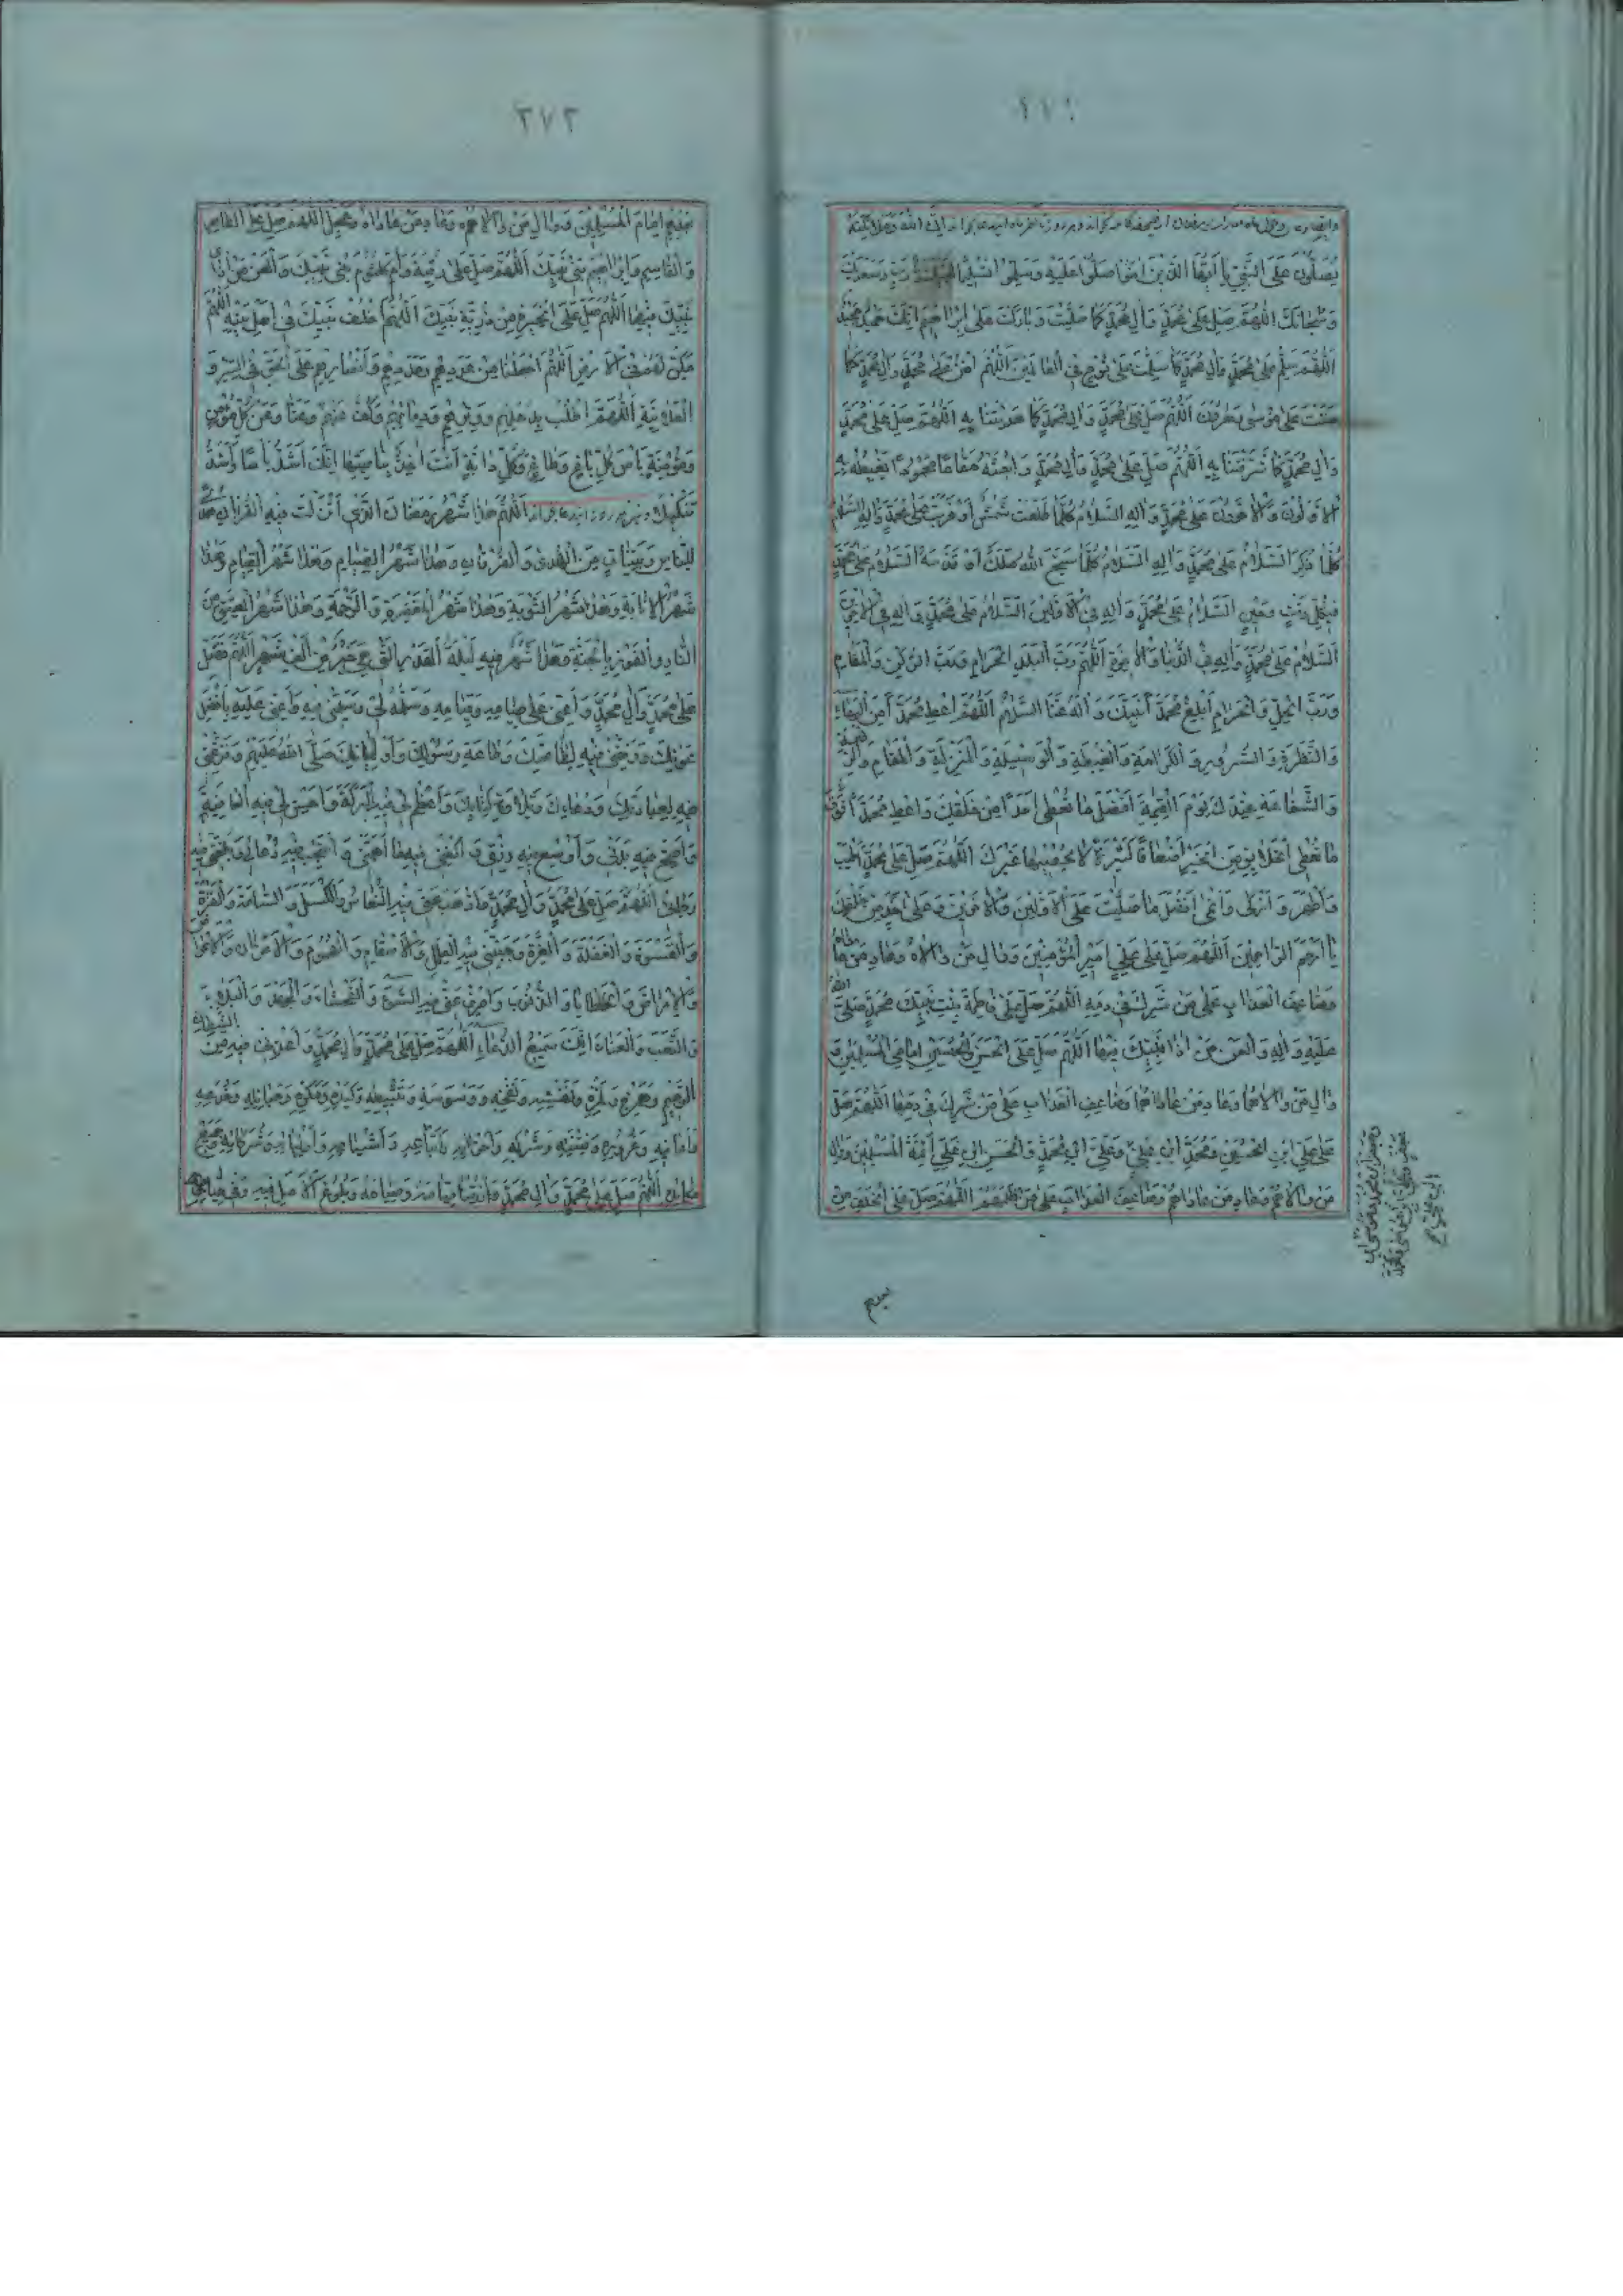 إِنَّ اللَّهَ وَمَلَائِكَتَهُ
يُصَلُّونَ عَلَى النَّبِيِّ يَا أَيُّهَا الَّذِينَ آمَنُوا صَلُّوا عَلَيْهِ وَسَلِّمُوا تَسْلِيمًا لَبَّيْكَ يَا رَبِّ وَسَعْدَيْكَ
وَسُبْحَانَكَ اللَّهُمَّ صَلِّ عَلَى مُحَمَّدٍ وَآلِ مُحَمَّدٍ كَمَا صَلَّيْتَ وَبَارَكْتَ عَلَى إِبْرَاهِيمَ إِنَّكَ حَمِيدٌ مَجِيدٌ
اللَّهُمَّ سَلِّمْ عَلَى مُحَمَّدٍ وَآلِ مُحَمَّدٍ كَمَا سَلَّمْتَ عَلَى نُوحٍ فِي الْعَالَمِينَ اللَّهُمَّ امْنُنْ عَلَى مُحَمَّدٍ وَآلِ مُحَمَّدٍ كَمَا
مَنَنْتَ عَلَى مُوسَى وَهَارُونَ اللَّهُمَّ صَلِّ عَلَى مُحَمَّدٍ وَآلِ مُحَمَّدٍ كَمَا هَدَيْتَنَا بِهِ اللَّهُمَّ صَلِّ عَلَى مُحَمَّدٍ
وَآلِ مُحَمَّدٍ كَمَا شَرَّفْتَنَا بِهِ اللَّهُمَّ صَلِّ عَلَى مُحَمَّدٍ وَآلِ مُحَمَّدٍ وَابْعَثْهُ مَقَامًا مَحْمُودًا يَغْبِطُهُ بِهِ
الْأَوَّلُونَ وَالْآخِرُونَ عَلَى مُحَمَّدٍ وَآلِهِ السَّلَامُ كُلَّمَا طَلَعَتْ شَمْسٌ أَوْ غَرَبَتْ عَلَى مُحَمَّدٍ وَآلِهِ السَّلَامُ
كُلَّمَا ذُكِرَ السَّلَامُ عَلَى مُحَمَّدٍ وَآلِهِ السَّلَامُ كُلَّمَا سَبَّحَ اللَّهَ مَلَكٌ أَوْ قَدَّسَهُ السَّلَامُ عَلَى مُحَمَّدٍ
السَّلَامُ عَلَى مُحَمَّدٍ وَآلِهِ فِي الْأَوَّلِينَ السَّلَامُ عَلَى مُحَمَّدٍ وَآلِهِ فِي الْآخِرِينَ
السَّلَامُ عَلَى مُحَمَّدٍ وَآلِهِ فِي الدُّنْيَا وَالْآخِرَةِ اللَّهُمَّ رَبَّ الْبَلَدِ الْحَرَامِ وَرَبَّ الرُّكْنِ وَالْمَقَامِ
وَرَبَّ الْحِلِّ وَالْحَرَامِ أَبْلِغْ مُحَمَّدًا نَبِيَّكَ وَآلَهُ عَنَّا السَّلَامَ اللَّهُمَّ أَعْطِ مُحَمَّدًا مِنَ الْبَهَاءِ
وَالنَّضْرَةِ وَالسُّرُورِ وَالْكَرَامَةِ وَالْغِبْطَةِ وَالْوَسِيلَةِ وَالْمَنْزِلَةِ وَالْمَقَامِ وَالرِّفْعَةِ
وَالشَّفَاعَةِ عِنْدَكَ يَوْمَ الْقِيَامَةِ أَفْضَلَ مَا تُعْطِي أَحَدًا مِنْ خَلْقِكَ وَأَعْطِ مُحَمَّدًا فَوْقَ
مَا تُعْطِي الْخَلَائِقَ مِنَ الْخَيْرِ أَضْعَافًا كَثِيرَةً لَا يُحْصِيهَا غَيْرُكَ اللَّهُمَّ صَلِّ عَلَى مُحَمَّدٍ أَطْيَبَ
وَأَطْهَرَ وَأَزْكَى وَأَنْمَى أَفْضَلَ مَا صَلَّيْتَ عَلَى الْأَوَّلِينَ وَالْآخِرِينَ وَعَلَى أَحَدٍ مِنْ خَلْقِكَ
يَا أَرْحَمَ الرَّاحِمِينَ اللَّهُمَّ صَلِّ عَلَى عَلِيٍّ أَمِيرِ الْمُؤْمِنِينَ وَوَالِ مَنْ وَالَاهُ وَعَادِ مَنْ عَادَاهُ
وَضَاعِفِ الْعَذَابَ عَلَى مَنْ شَرِكَ فِي دَمِهِ اللَّهُمَّ صَلِّ عَلَى فَاطِمَةَ بِنْتِ نَبِيِّكَ مُحَمَّدٍ صَلَّى اللَّهُ
عَلَيْهِ وَآلِهِ وَالْعَنْ مَنْ آذَى نَبِيَّكَ فِيهَا اللَّهُمَّ صَلِّ عَلَى الْحَسَنِ وَالْحُسَيْنِ إِمَامَيِ الْمُسْلِمِينَ وَ
وَالِ مَنْ وَالَاهُمَا وَعَادِ مَنْ عَادَاهُمَا وَضَاعِفِ الْعَذَابَ عَلَى مَنْ شَرِكَ فِي دَمِهِمَا اللَّهُمَّ صَلِّ
عَلَى عَلِيِّ ابْنِ الْحُسَيْنِ وَمُحَمَّدِ ابْنِ عَلِيٍّ وَعَلِيِّ ابْنِ مُحَمَّدٍ وَالْحَسَنِ ابْنِ عَلِيٍّ أَئِمَّةِ الْمُسْلِمِينَ وَوَالِ
مَنْ وَالَاهُمْ وَعَادِ مَنْ عَادَاهُمْ وَضَاعِفِ الْعَذَابَ عَلَى مَنْ ظَلَمَهُمْ اللَّهُمَّ صَلِّ عَلَى الْخَلَفِ مِنْ
٢٧٢
إِمَامِ الْمُسْلِمِينَ وَوَالِ مَنْ وَالَاهُ وَعَادِ مَنْ عَادَاهُ وَعَجِّلْ اللَّهُمَّ صَلِّ عَلَى الطَّاهِرِ
وَالْقَاسِمِ وَإِبْرَاهِيمَ بَنِي نَبِيِّكَ اللَّهُمَّ صَلِّ عَلَى رُقَيَّةَ وَأُمِّ كُلْثُومٍ بِنْتَيْ نَبِيِّكَ وَالْعَنْ مَنْ آذَى
نَبِيَّكَ فِيهِمَا اللَّهُمَّ صَلِّ عَلَى الْخِيَرَةِ مِنْ ذُرِّيَّةِ نَبِيِّكَ اللَّهُمَّ اخْلُفْ نَبِيَّكَ فِي أَهْلِ بَيْتِهِ اللَّهُمَّ
مَكِّنْ لَهُمْ فِي الْأَرْضِ اللَّهُمَّ اجْعَلْنَا مِنْ عَدَدِهِمْ وَمَدَدِهِمْ وَأَنْصَارِهِمْ عَلَى الْحَقِّ فِي السِّرِّ وَ
الْعَلَانِيَةِ اللَّهُمَّ اطْلُبْ بِذَحْلِهِمْ وَوِتْرِهِمْ وَدِمَائِهِمْ وَكُفَّ عَنْهُمْ وَعَنَّا وَعَنْ كُلِّ مُؤْمِنٍ
وَمُؤْمِنَةٍ بَأْسَ كُلِّ بَاغٍ وَطَاغٍ وَكُلِّ دَابَّةٍ أَنْتَ آخِذٌ بِنَاصِيَتِهَا إِنَّكَ أَشَدُّ بَأْسًا وَأَشَدُّ
تَنْكِيلًا اللَّهُمَّ هَذَا شَهْرُ رَمَضَانَ الَّذِي أَنْزَلْتَ فِيهِ الْقُرْآنَ هُدًى
لِلنَّاسِ وَبَيِّنَاتٍ مِنَ الْهُدَى وَالْفُرْقَانِ وَهَذَا شَهْرُ الصِّيَامِ وَهَذَا شَهْرُ الْقِيَامِ وَهَذَا
شَهْرُ الْإِنَابَةِ وَهَذَا شَهْرُ التَّوْبَةِ وَهَذَا شَهْرُ الْمَغْفِرَةِ وَالرَّحْمَةِ وَهَذَا شَهْرُ الْعِتْقِ مِنَ
النَّارِ وَالْفَوْزِ بِالْجَنَّةِ وَهَذَا شَهْرٌ فِيهِ لَيْلَةُ الْقَدْرِ الَّتِي هِيَ خَيْرٌ مِنْ أَلْفِ شَهْرٍ اللَّهُمَّ فَصَلِّ
عَلَى مُحَمَّدٍ وَآلِ مُحَمَّدٍ وَأَعِنِّي عَلَى صِيَامِهِ وَقِيَامِهِ وَسَلِّمْهُ لِي وَسَلِّمْنِي فِيهِ وَأَعِنِّي عَلَيْهِ بِأَفْضَلِ
عَوْنِكَ وَوَفِّقْنِي فِيهِ لِطَاعَتِكَ وَطَاعَةِ رَسُولِكَ وَأَوْلِيَائِكَ صَلَّى اللَّهُ عَلَيْهِمْ وَفَرِّغْنِي
فِيهِ لِعِبَادَتِكَ وَدُعَائِكَ وَتِلَاوَةِ كِتَابِكَ وَأَعْظِمْ لِي فِيهِ الْبَرَكَةَ وَأَحْسِنْ لِي فِيهِ الْعَافِيَةَ
وَأَصِحَّ فِيهِ بَدَنِي وَأَوْسِعْ فِيهِ رِزْقِي وَاكْفِنِي فِيهِ مَا أَهَمَّنِي وَاسْتَجِبْ فِيهِ دُعَائِي وَبَلِّغْنِي فِيهِ
رَجَائِي اللَّهُمَّ صَلِّ عَلَى مُحَمَّدٍ وَآلِ مُحَمَّدٍ وَأَذْهِبْ عَنِّي فِيهِ النُّعَاسَ وَالْكَسَلَ وَالسَّأْمَةَ وَالْفَتْرَةَ
وَالْقَسْوَةَ وَالْغَفْلَةَ وَالْغِرَّةَ وَجَنِّبْنِي فِيهِ الْعِلَلَ وَالْأَسْقَامَ وَالْهُمُومَ وَالْأَحْزَانَ وَالْأَعْرَاضَ
وَالْأَمْرَاضَ وَالْخَطَايَا وَالذُّنُوبَ وَاصْرِفْ عَنِّي فِيهِ السُّوءَ وَالْفَحْشَاءَ وَالْجَهْدَ وَالْبَلَاءَ
وَالتَّعَبَ وَالْعَنَاءَ إِنَّكَ سَمِيعُ الدُّعَاءِ اللَّهُمَّ صَلِّ عَلَى مُحَمَّدٍ وَآلِ مُحَمَّدٍ وَأَعِذْنِي فِيهِ مِنَ الشَّيْطَانِ
الرَّجِيمِ وَهَمْزِهِ وَلَمْزِهِ وَنَفْثِهِ وَنَفْخِهِ وَوَسْوَسَتِهِ وَتَثْبِيطِهِ وَكَيْدِهِ وَمَكْرِهِ وَحَبَائِلِهِ وَخُدَعِهِ
وَأَمَانِيِّهِ وَغُرُورِهِ وَفِتْنَتِهِ وَشَرَكِهِ وَأَحْزَابِهِ وَأَتْبَاعِهِ وَأَشْيَاعِهِ وَأَوْلِيَائِهِ وَشُرَكَائِهِ وَجَمِيعِ
مَكَائِدِهِ اللَّهُمَّ صَلِّ عَلَى مُحَمَّدٍ وَآلِ مُحَمَّدٍ وَارْزُقْنَا قِيَامَهُ وَصِيَامَهُ وَبُلُوغَ الْأَمَلِ فِيهِ وَفِي قِيَامِهِ